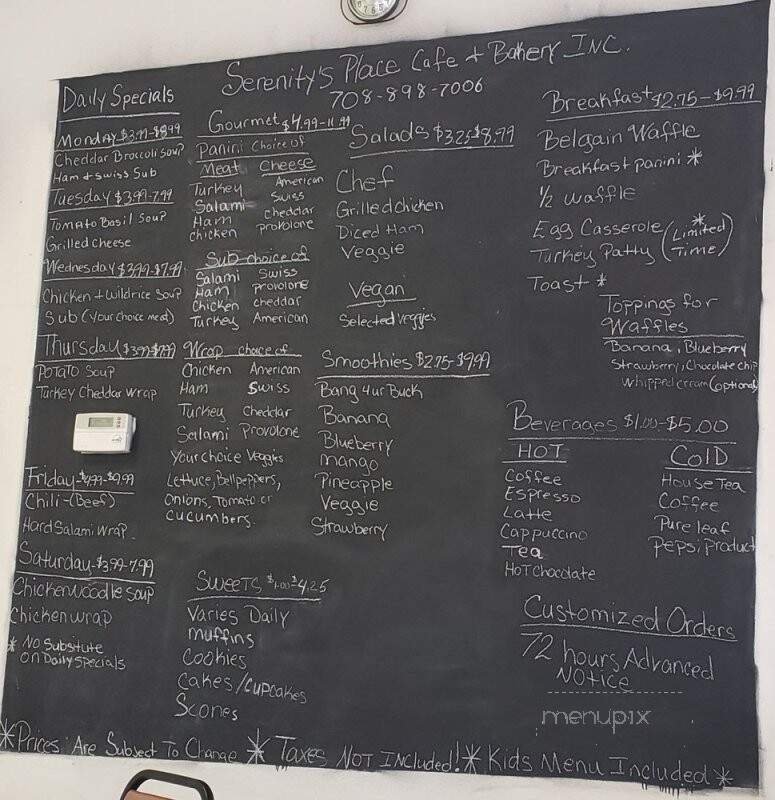 Serenity's Place Cafe + Bakery INC.
708-898-7006
Daily Specials
Monday $3.99-$8.99
Cheddar Broccoli Soup
Ham + Swiss Sub
Tuesday $3.99-7.99
Tomato Basil Soup
Grilled Cheese
Wednesday $3.99-$7.99
Chicken + Wildrice Soup
Sub (Your choice meat)
Thursday
Potato Soup
Turkey Cheddar Wrap
Friday
Chili-(Beef)
Hard Salami Wrap
Saturday-$3.99-7.99
Chicken Noodle Soup
Chicken wrap
* No Substitute
on Daily Specials
Gourmet $4.99-11.99
Panini Choice of
Meat Cheese
Turkey American
Salami Swiss
Ham Cheddar
Chicken Provolone
Sub choice of
Salami Swiss
Ham Provolone
Chicken cheddar
Turkey American
Wrap choice of
Chicken American
Ham Swiss
Turkey Cheddar
Salami Provolone
Your choice Veggies
Lettuce, Bellpeppers,
Onions, Tomato or
Cucumbers.
Sweets $1.00-$4.25
Varies Daily
Muffins
Cookies
Cakes/Cupcakes
Scones
Salads $3.25-$8.99
Chef
Grilled chicken
Diced Ham
Veggie
Vegan
Selected veggies
Smoothies $2.75-$9.99
Bang 4ur Buck
Banana
Blueberry
Mango
Pineapple
Veggie
Strawberry
Breakfast $2.75-$9.99
Belgain Waffle
Breakfast panini *
1/2 waffle
Egg Casserole
Turkey Patty (Limited Time) *
Toast *
Toppings for
Waffles
Banana, Blueberry
Strawberry, Chocolate chip
Whipped cream (optional)
Beverages $1.00-$5.00
HOT
Coffee
Espresso
Latte
Cappuccino
Tea
Hot Chocolate
Cold
House Tea
Coffee
Pure leaf
Pepsi Product
Customized Orders
72 hours Advanced
Notice
menupix
*Prices Are Subject To Change * Taxes Not Included! * Kids Menu Included *